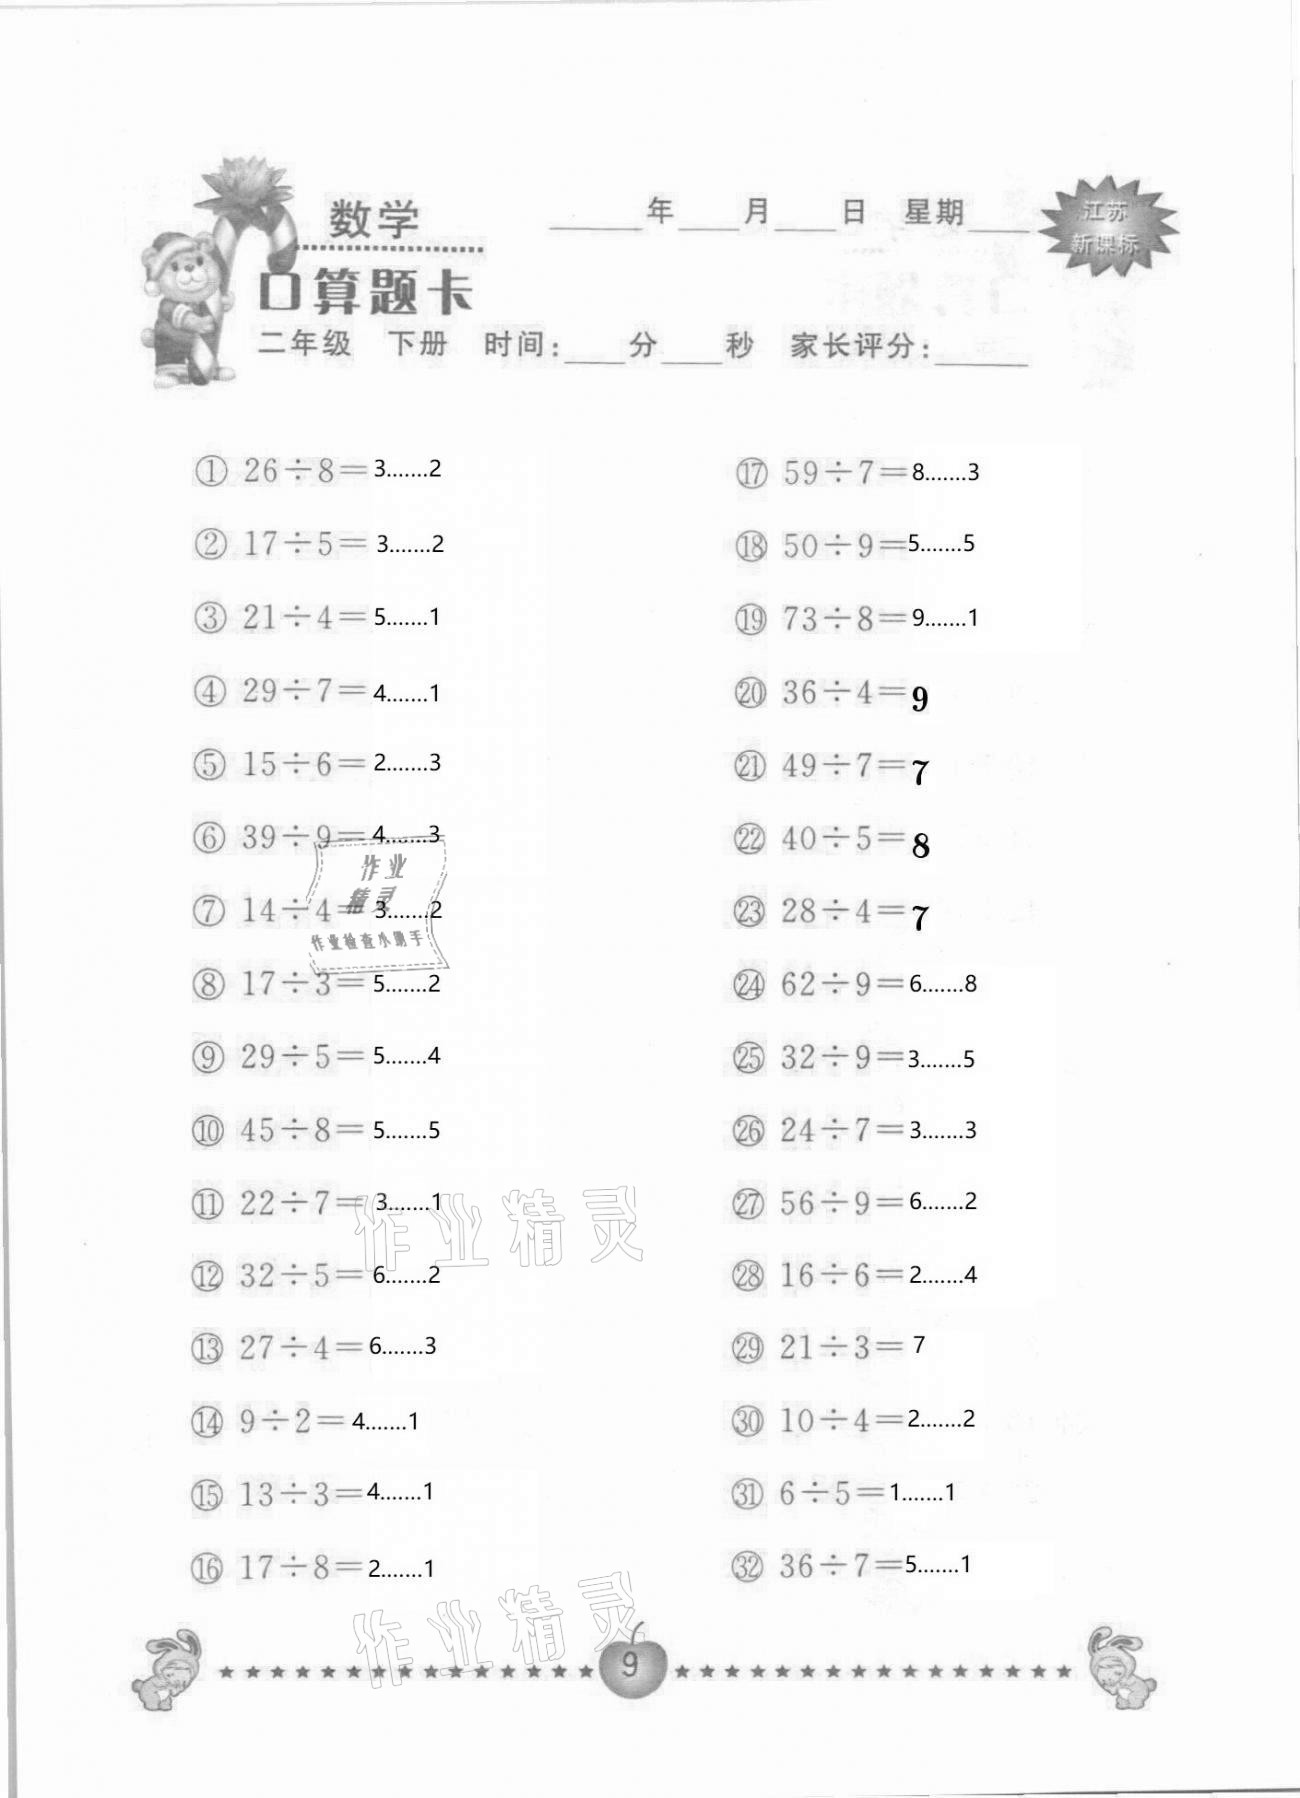 数学
____年____月____日 星期____
江苏
新课标
口算题卡
二年级 下册 时间:____分____秒 家长评分:______
① 26÷8=3.......2
② 17÷5=3.......2
③ 21÷4=5.......1
④ 29÷7=4.......1
⑤ 15÷6=2.......3
⑥ 39÷9=4.......3
⑦ 14÷4=3.......2
⑧ 17÷3=5.......2
⑨ 29÷5=5.......4
⑩ 45÷8=5.......5
⑪ 22÷7=3.......1
⑫ 32÷5=6.......2
⑬ 27÷4=6.......3
⑭ 9÷2=4.......1
⑮ 13÷3=4.......1
⑯ 17÷8=2.......1
⑰ 59÷7=8.......3
⑱ 50÷9=5.......5
⑲ 73÷8=9.......1
⑳ 36÷4=9
㉑ 49÷7=7
㉒ 40÷5=8
㉓ 28÷4=7
㉔ 62÷9=6.......8
㉕ 32÷9=3.......5
㉖ 24÷7=3.......3
㉗ 56÷9=6.......2
㉘ 16÷6=2.......4
㉙ 21÷3=7
㉚ 10÷4=2.......2
㉛ 6÷5=1.......1
㉜ 36÷7=5.......1
作业
精灵
作业检查小助手
作业精灵
作业精灵
9